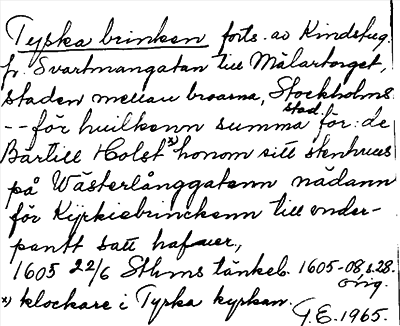 Tyska brinken forts. av Kindstug.
fr. Svartmangatan till Mälartorget,
staden mellan broarna, Stockholms
stad
-- för huilkenn summa för:de
Bärtill Holst *) honom sitt stenhuus
på Wästerlånggatenn nädann
för Kyrkiebrinckenn till under-
pantt satt hafuer,
1605 22/6 Sthms tänkeb. 1605-08, s. 28.
orig.
*) klockare i Tyska kyrkan.
G.E. 1965.